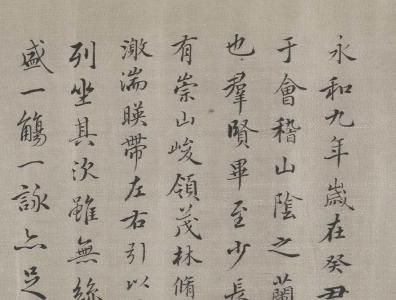 永和九年歲在癸丑
于會稽山陰之蘭
也羣賢畢至少長
有崇山峻領茂林脩
激湍暎帶左右引以
列坐其次雖無絲
盛一觴一詠亦足